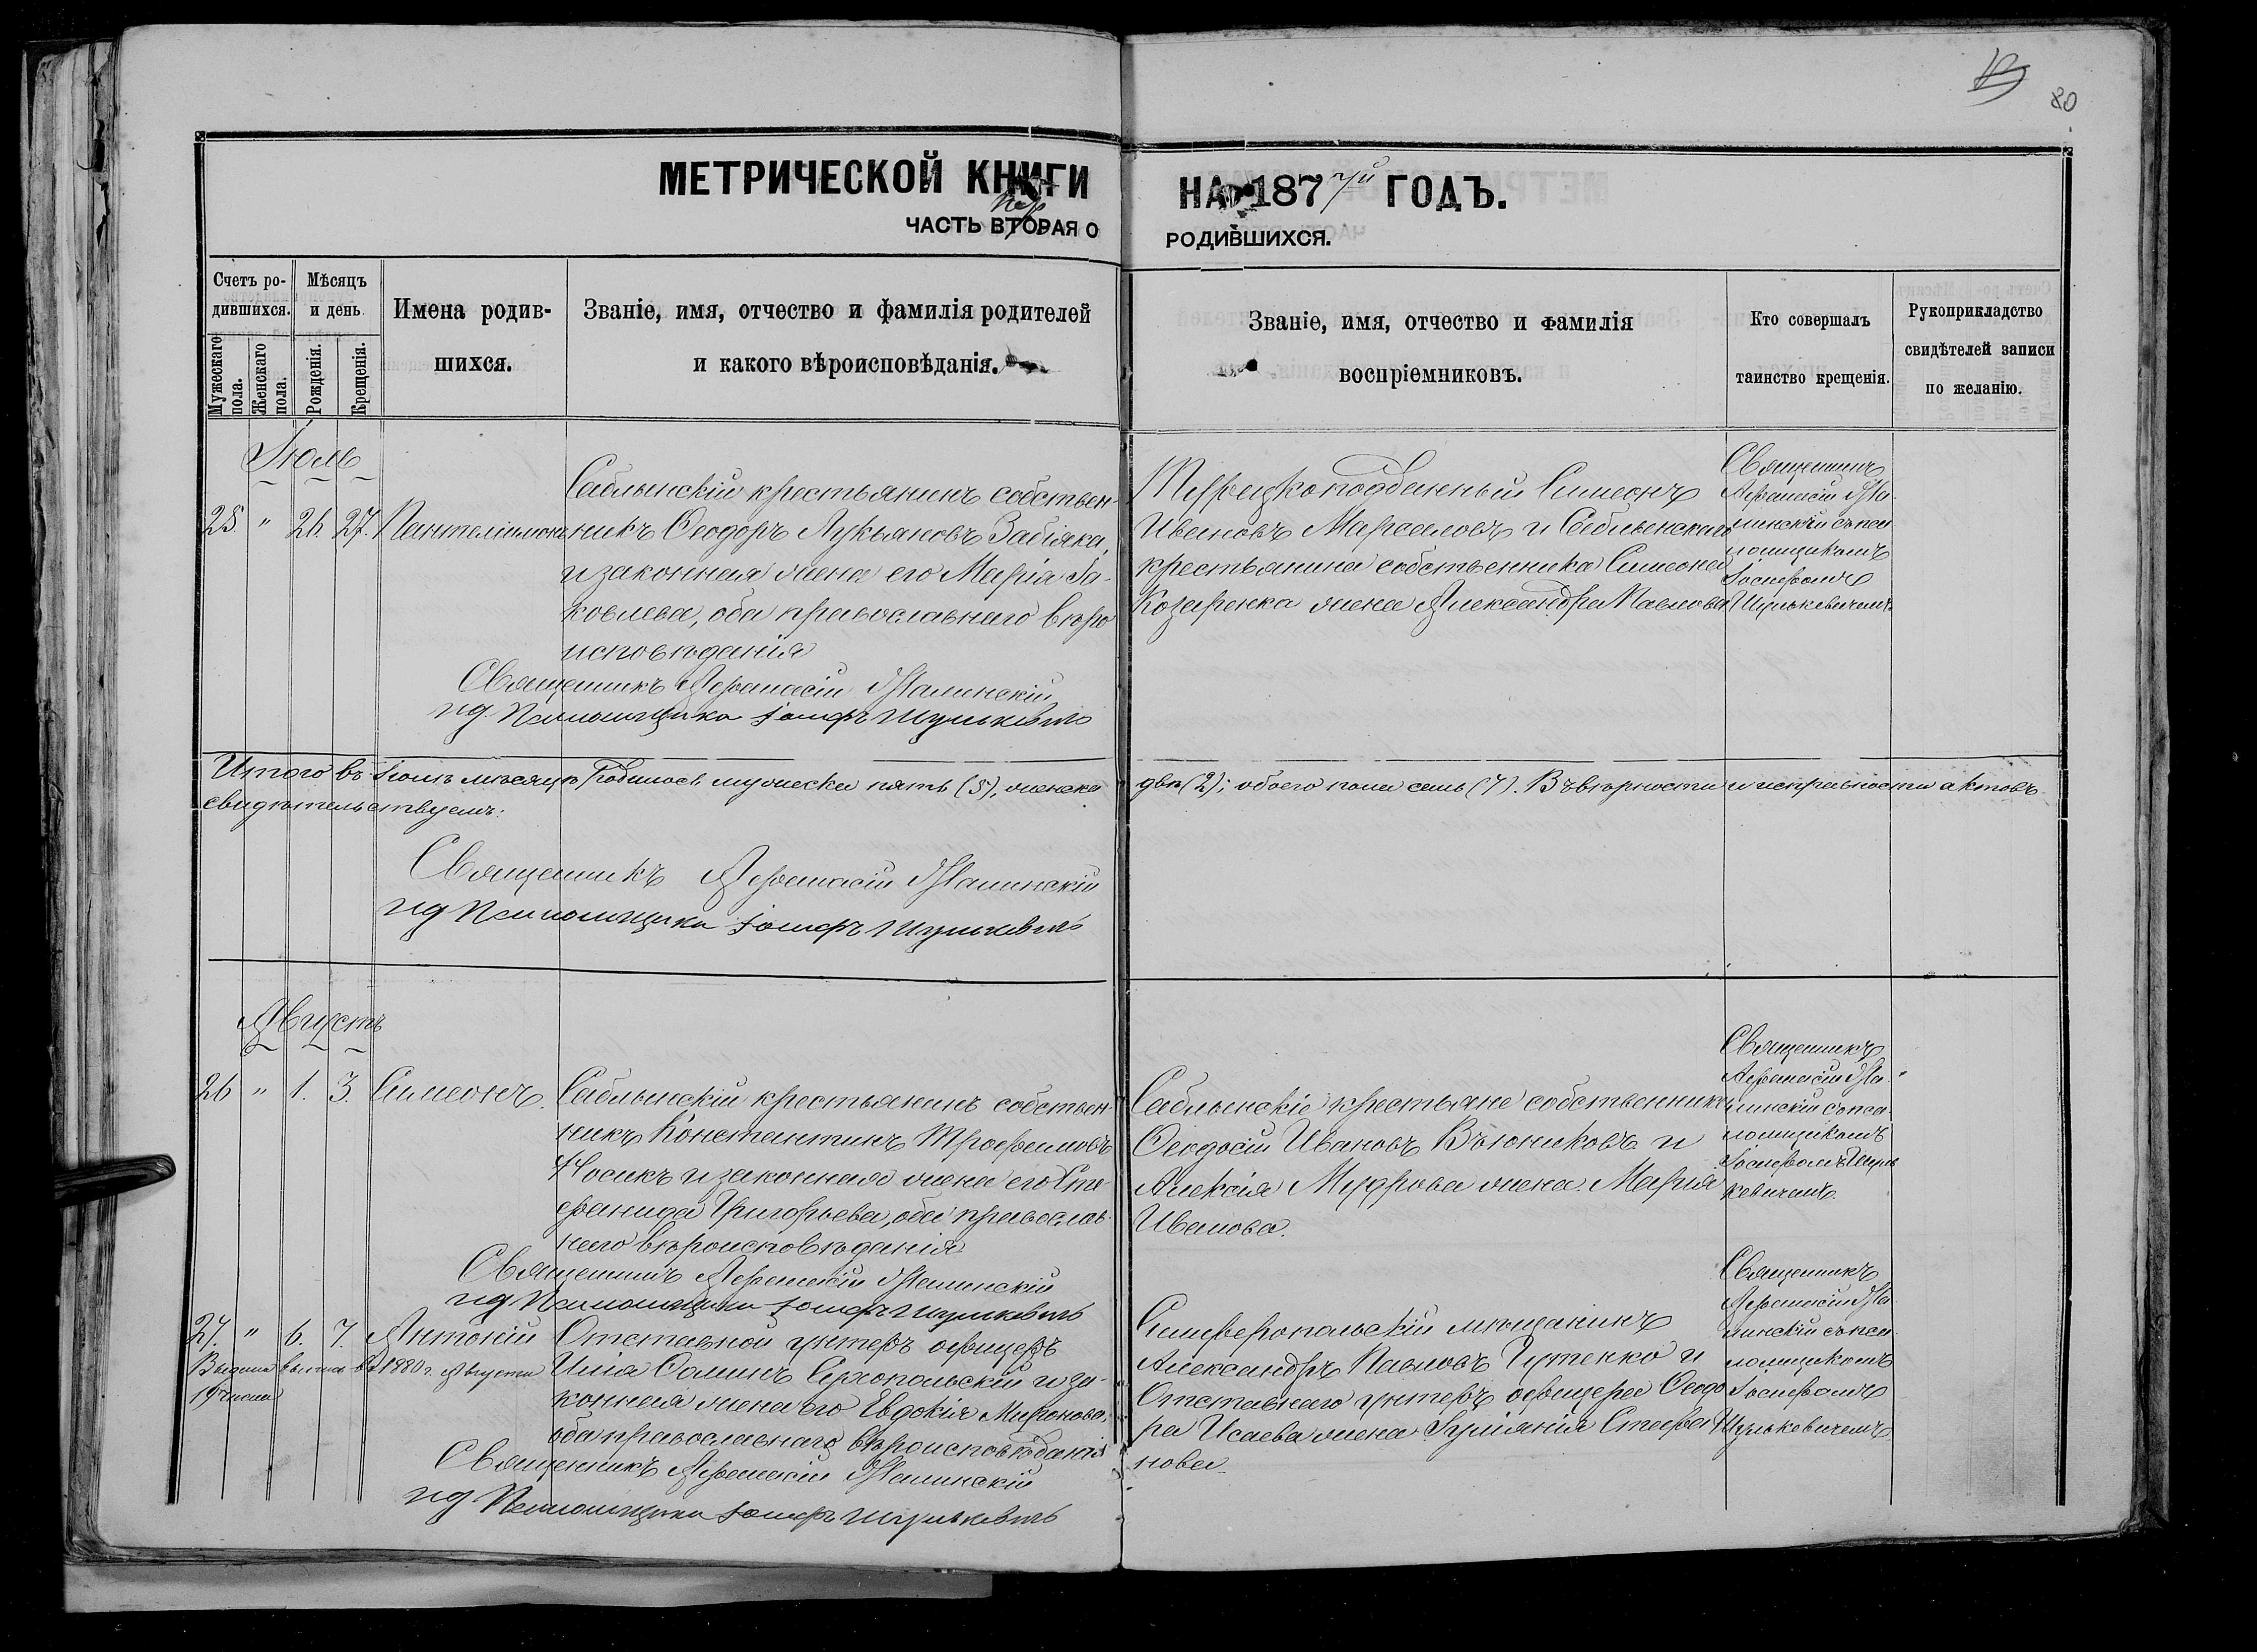 80
МЕТРИЧЕСКОЙ КНИГИ НА 1877й ГОДЪ.
ЧАСТЬ ВТОРАЯ О РОДИВШИХСЯ.
пер
Счетъ родившихся.
Мужескаго пола.
Женскаго пола.
Мѣсяцъ и день
Рожденія.
Крещенія.
Имена родив-
шихся.
Званіе, имя, отчество и фамилія родителей
и какого вѣроисповѣданія.
Званіе, имя, отчество и фамилія
воспріемниковъ.
Кто совершалъ
таинство крещенія.
Рукоприкладство
свидѣтелей записи
по желанію.
Іюль
25 " 26. 27. Пантелеимонъ
Саблынскій крестьянинъ собствен-
никъ Ѳеодоръ Лукьяновъ Забіяка,
и законная жена его Марія Іа-
ковлева, оба православнаго вѣро
исповѣданія
Священникъ Аѳанасій
ид. Псаломщика Іосифъ Шулькевичъ
Турецкоподданный Симеонъ
Ивановъ и Саблынскаго
крестьянина собственника Симеона
Козаренка жена Александра Павлова
Священникъ
Аѳанасій
линскій съ пса
ломщикомъ
Іосифомъ
Шулькевичемъ.
Итого въ Іюлѣ мѣсяцѣ родилось мужеска пять (5), женска
два (2); обоего пола семь (7). Въ вѣрности и исправности актовъ
свидѣтельствуемъ:
Священникъ Аѳанасій
ид Псаломщика Іосифъ Шулькевичъ
Августъ
26 " 1. 3. Симеонъ.
Саблынскій крестьянинъ собствен-
никъ Константинъ Трофимовъ
Носикъ и законная жена его Сте
фанида Григорьева, оба православ-
наго вѣроисповѣданія
Священникъ Аѳанасій
ид Псаломщика Іосифъ Шулькевичъ
Саблынскіе крестьяне собственники
Ѳеодосій Ивановъ Вьюниковъ и
Алексія Мудрова жена Марія
Иванова.
Священникъ
Аѳанасій
линскій съ пса
ломщикомъ
Іосифомъ Шуль
кевичемъ.
27. " 6. 7. Антоній
Выдана выпись въ 1880 г. Августа
19 числа
Отставной унтеръ офицеръ
Илія Ѳоминъ и за-
конная жена его Евдокія Миронова,
оба православнаго вѣроисповѣданія
Священникъ Аѳанасій
ид Псаломщика Іосифъ Шулькевичъ
Симферопольскій мѣщанинъ
Александръ Павловъ и
Отставнаго унтеръ офицера Ѳеодо
ра Исаева жена Іуліанія Стефа
нова
Священникъ
Аѳанасій
линскій съ пса
ломщикомъ
Іосифомъ
Шулькевичемъ